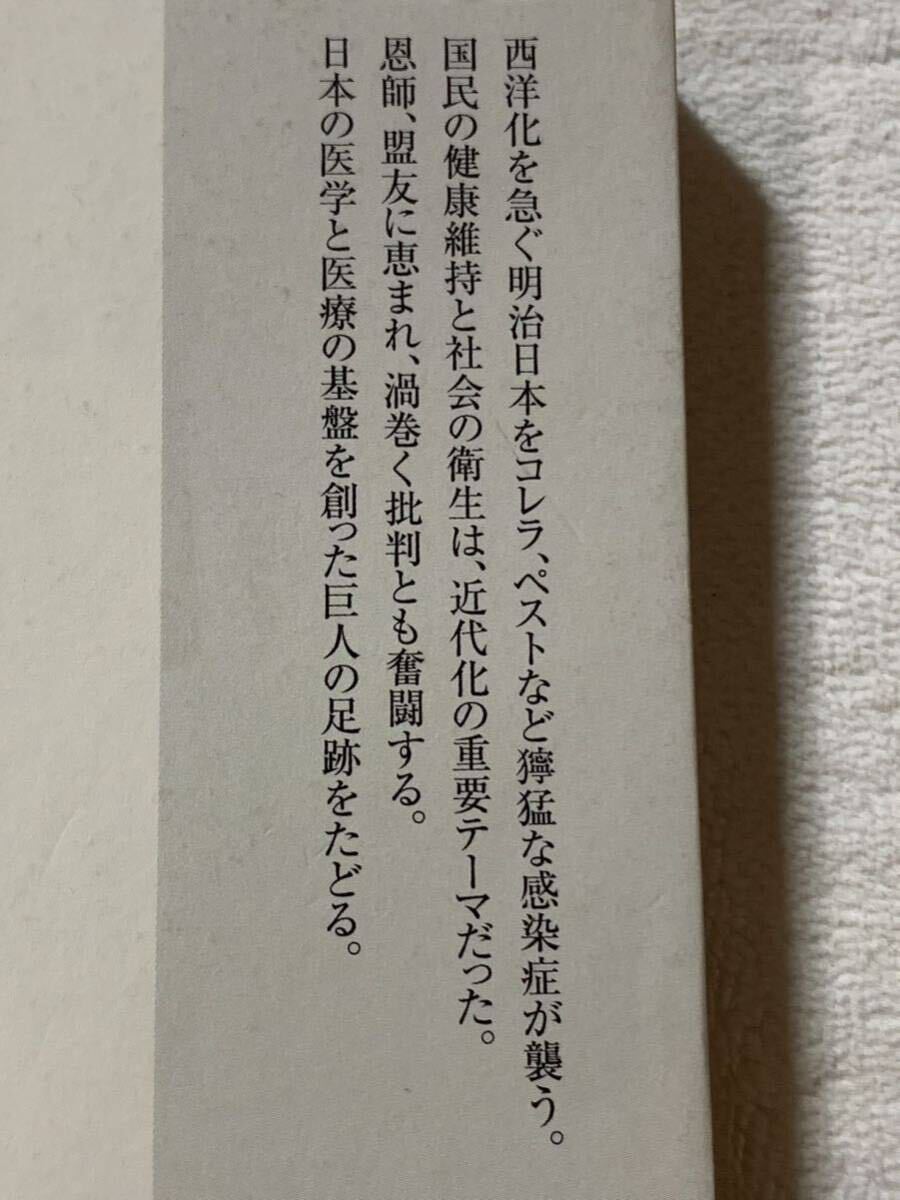 西洋化を急ぐ明治日本をコレラ、ペストなど獰猛な感染症が襲う。
国民の健康維持と社会の衛生は、近代化の重要テーマだった。
恩師、盟友に恵まれ、渦巻く批判とも奮闘する。
日本の医学と医療の基盤を創った巨人の足跡をたどる。